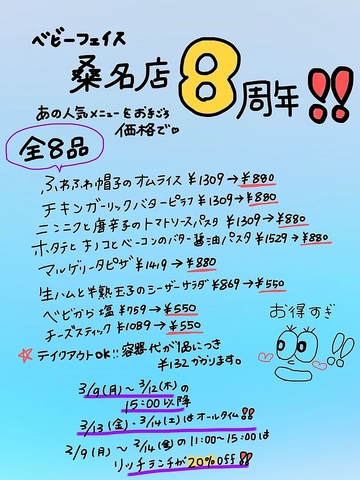 ベビーフェイス
桑名店8周年!!
あの人気メニューをお手ごろ
価格で。
全8品
ふわふわ帽子のオムライス ¥1309→¥880
チキンガーリックバターピラフ ¥1309→¥880
ニンニクと唐辛子のトマトソースパスタ ¥1309→¥880
ホタテとキノコとベーコンのバター醤油パスタ ¥1529→¥880
マルゲリータピザ ¥1419→¥880
生ハムと半熟玉子のシーザーサラダ ¥869→¥550
ベビから塩 ¥759→¥550
チーズスティック ¥1089→¥550
お得すぎ
☆テイクアウトOK!!容器代が1品につき
¥132かかります。
3/9(月)～3/12(木)の
15:00以降
3/13(金)・3/14(土)はオールタイム!!
3/9(月)～3/14(金)の11:00～15:00は
リッチランチが20%OFF!!